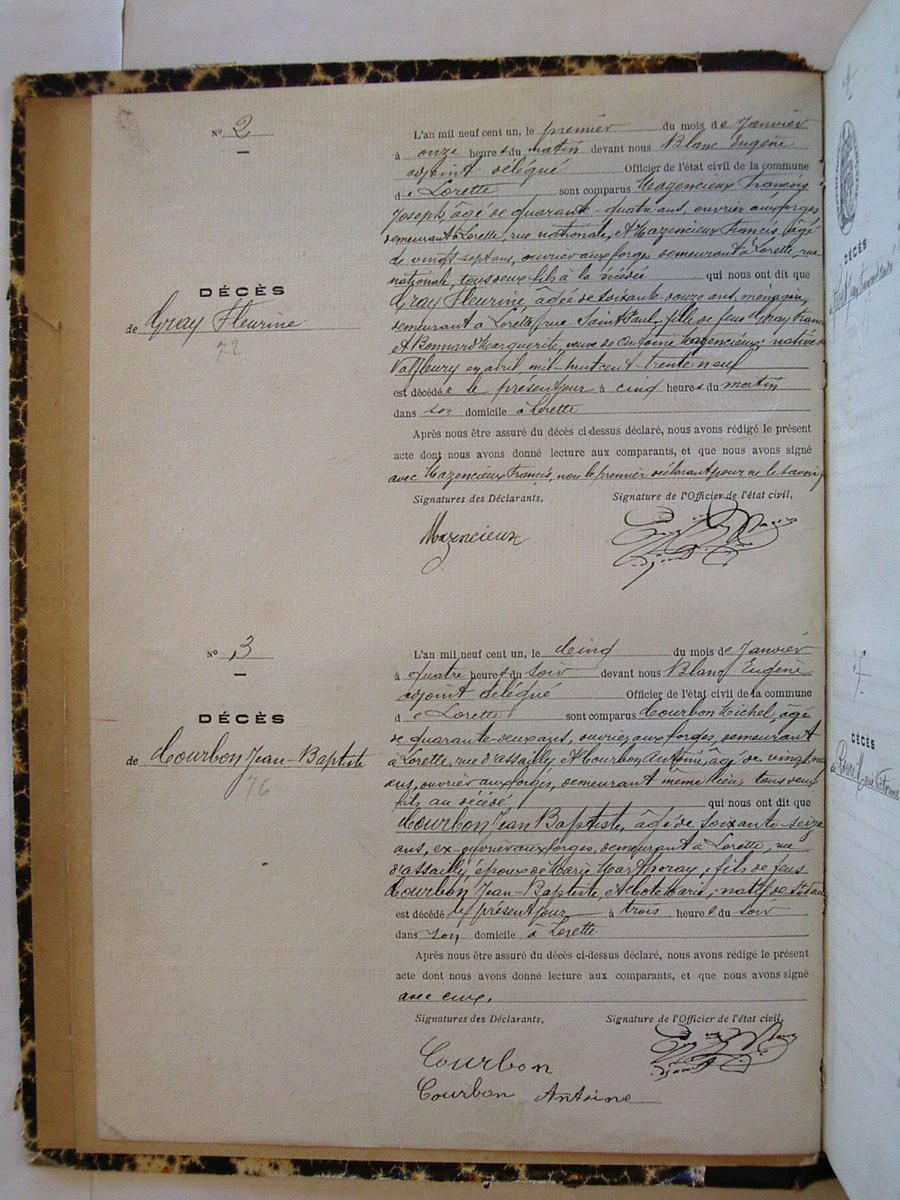 N° 2
DÉCÈS
de Gray Fleurine
72
L'an mil neuf cent un, le premier du mois de Janvier
à onze heures du matin devant nous Blanc Eugène
adjoint délégué Officier de l'état civil de la commune
de Lorette sont comparus Mazencieux François
Joseph âgé de quarante-quatre ans, ouvrier aux forges
demeurant à Lorette, rue nationale, et Mazencieux Francis, âgé
de vingt sept ans, ouvrier aux forges demeurant à Lorette, rue
nationale, tous deux fils à la décédée qui nous ont dit que
Gray Fleurine, âgée de soixante douze ans, ménagère,
demeurant à Lorette, rue Saint Paul, fille de feus Gray
et Bonnard Marguerite, veuve de Antoine Mazencieux, native de
Valfleury en avril, mil-huit cent-trente neuf
est décédée le présent jour à cinq heures du matin
dans son domicile à Lorette
Après nous être assuré du décès ci-dessus déclaré, nous avons rédigé le présent
acte dont nous avons donné lecture aux comparants, et que nous avons signé
avec Mazencieux Francis, non le premier déclarant pour ne le savoir,
Signatures des Déclarants, Signature de l'Officier de l'état civil,
Mazencieux
N° 3
DÉCÈS
de Courbon Jean-Baptiste
76
L'an mil neuf cent un, le cinq du mois de Janvier
à quatre heures du soir devant nous Blanc Eugène
adjoint délégué Officier de l'état civil de la commune
de Lorette sont comparus Courbon Michel, âgé
de quarante-deux ans, ouvrier aux forges, demeurant
à Lorette, rue d'assailly et Courbon Antoine, âgé de vingt
ans, ouvrier aux forges, demeurant même lieu, tous deux
fils au décédé qui nous ont dit que
Courbon Jean Baptiste, âgé de soixante-seize
ans, ex-ouvrier aux forges, demeurant à Lorette, rue
d'assailly, époux de Marie, fils de feus
Courbon Jean-Baptiste, et Marie, natif de
est décédé le présent jour à trois heures du soir
dans son domicile à Lorette
Après nous être assuré du décès ci-dessus déclaré, nous avons rédigé le présent
acte dont nous avons donné lecture aux comparants, et que nous avons signé
avec eux.
Signatures des Déclarants, Signature de l'Officier de l'état civil,
Courbon
Courbon Antoine
DÉCÈS
DÉCÈS